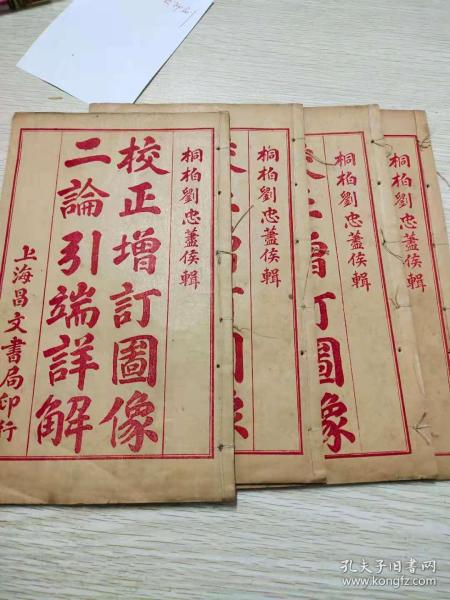 桐柏劉忠藎侯輯
校正增訂圖像
二論引端詳解
上海昌文書局印行
桐柏劉忠藎侯輯
桐柏劉忠藎侯輯
增訂圖像
桐柏劉忠藎侯輯
孔夫子旧书网
www.kongfz.com